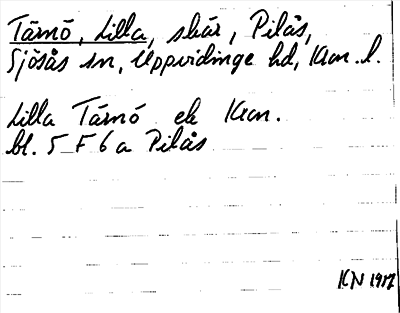 Tärnö, Lilla, skär, Pilås,
Sjösås sn, Uppvidinge hd, Kron. l.
Lilla Tärnö ek Kron.
bl. 5 F 6 a Pilås
KN 1917